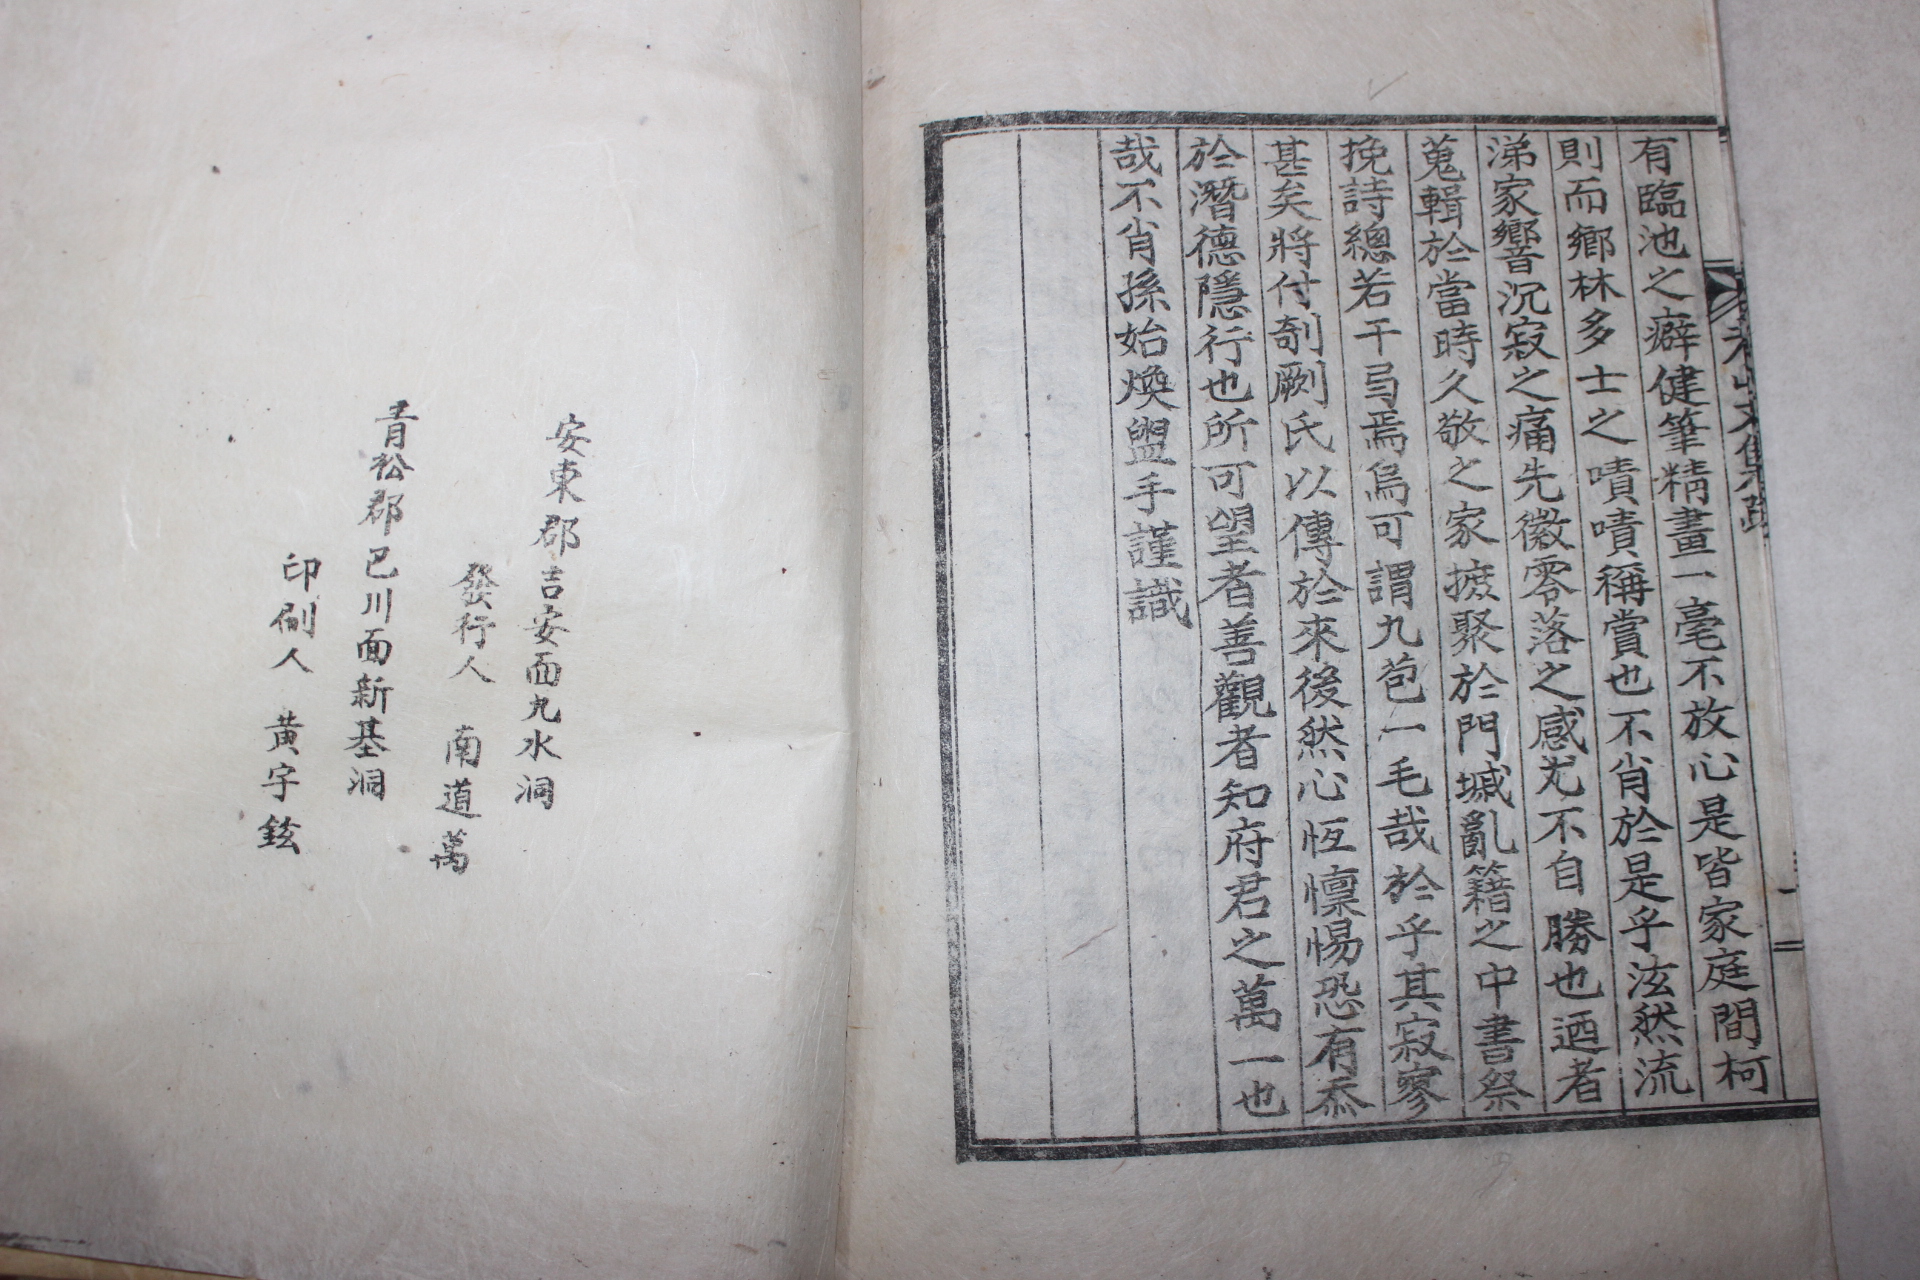 有臨池之癖健筆精畫一毫不放心是皆家庭間柯
則而鄉林多士之嘖嘖稱賞也不肖於是乎泫然流
涕家響沉寂之痛先徽零落之感尤不自勝也迺者
蒐輯於當時久敬之家摭聚於門墄亂籍之中書祭
挽詩總若干弓焉烏可謂九苞一毛哉於乎其寂寥
甚矣將付剞劂氏以傳於來後然心恆懍惕恐有忝
於潛德隱行也所可望者善觀者知府君之萬一也
哉不肖孫始煥盥手謹識
安東郡吉安面九水洞
發行人 南道萬
靑松郡巴川面新基洞
印刷人 黃字鉉